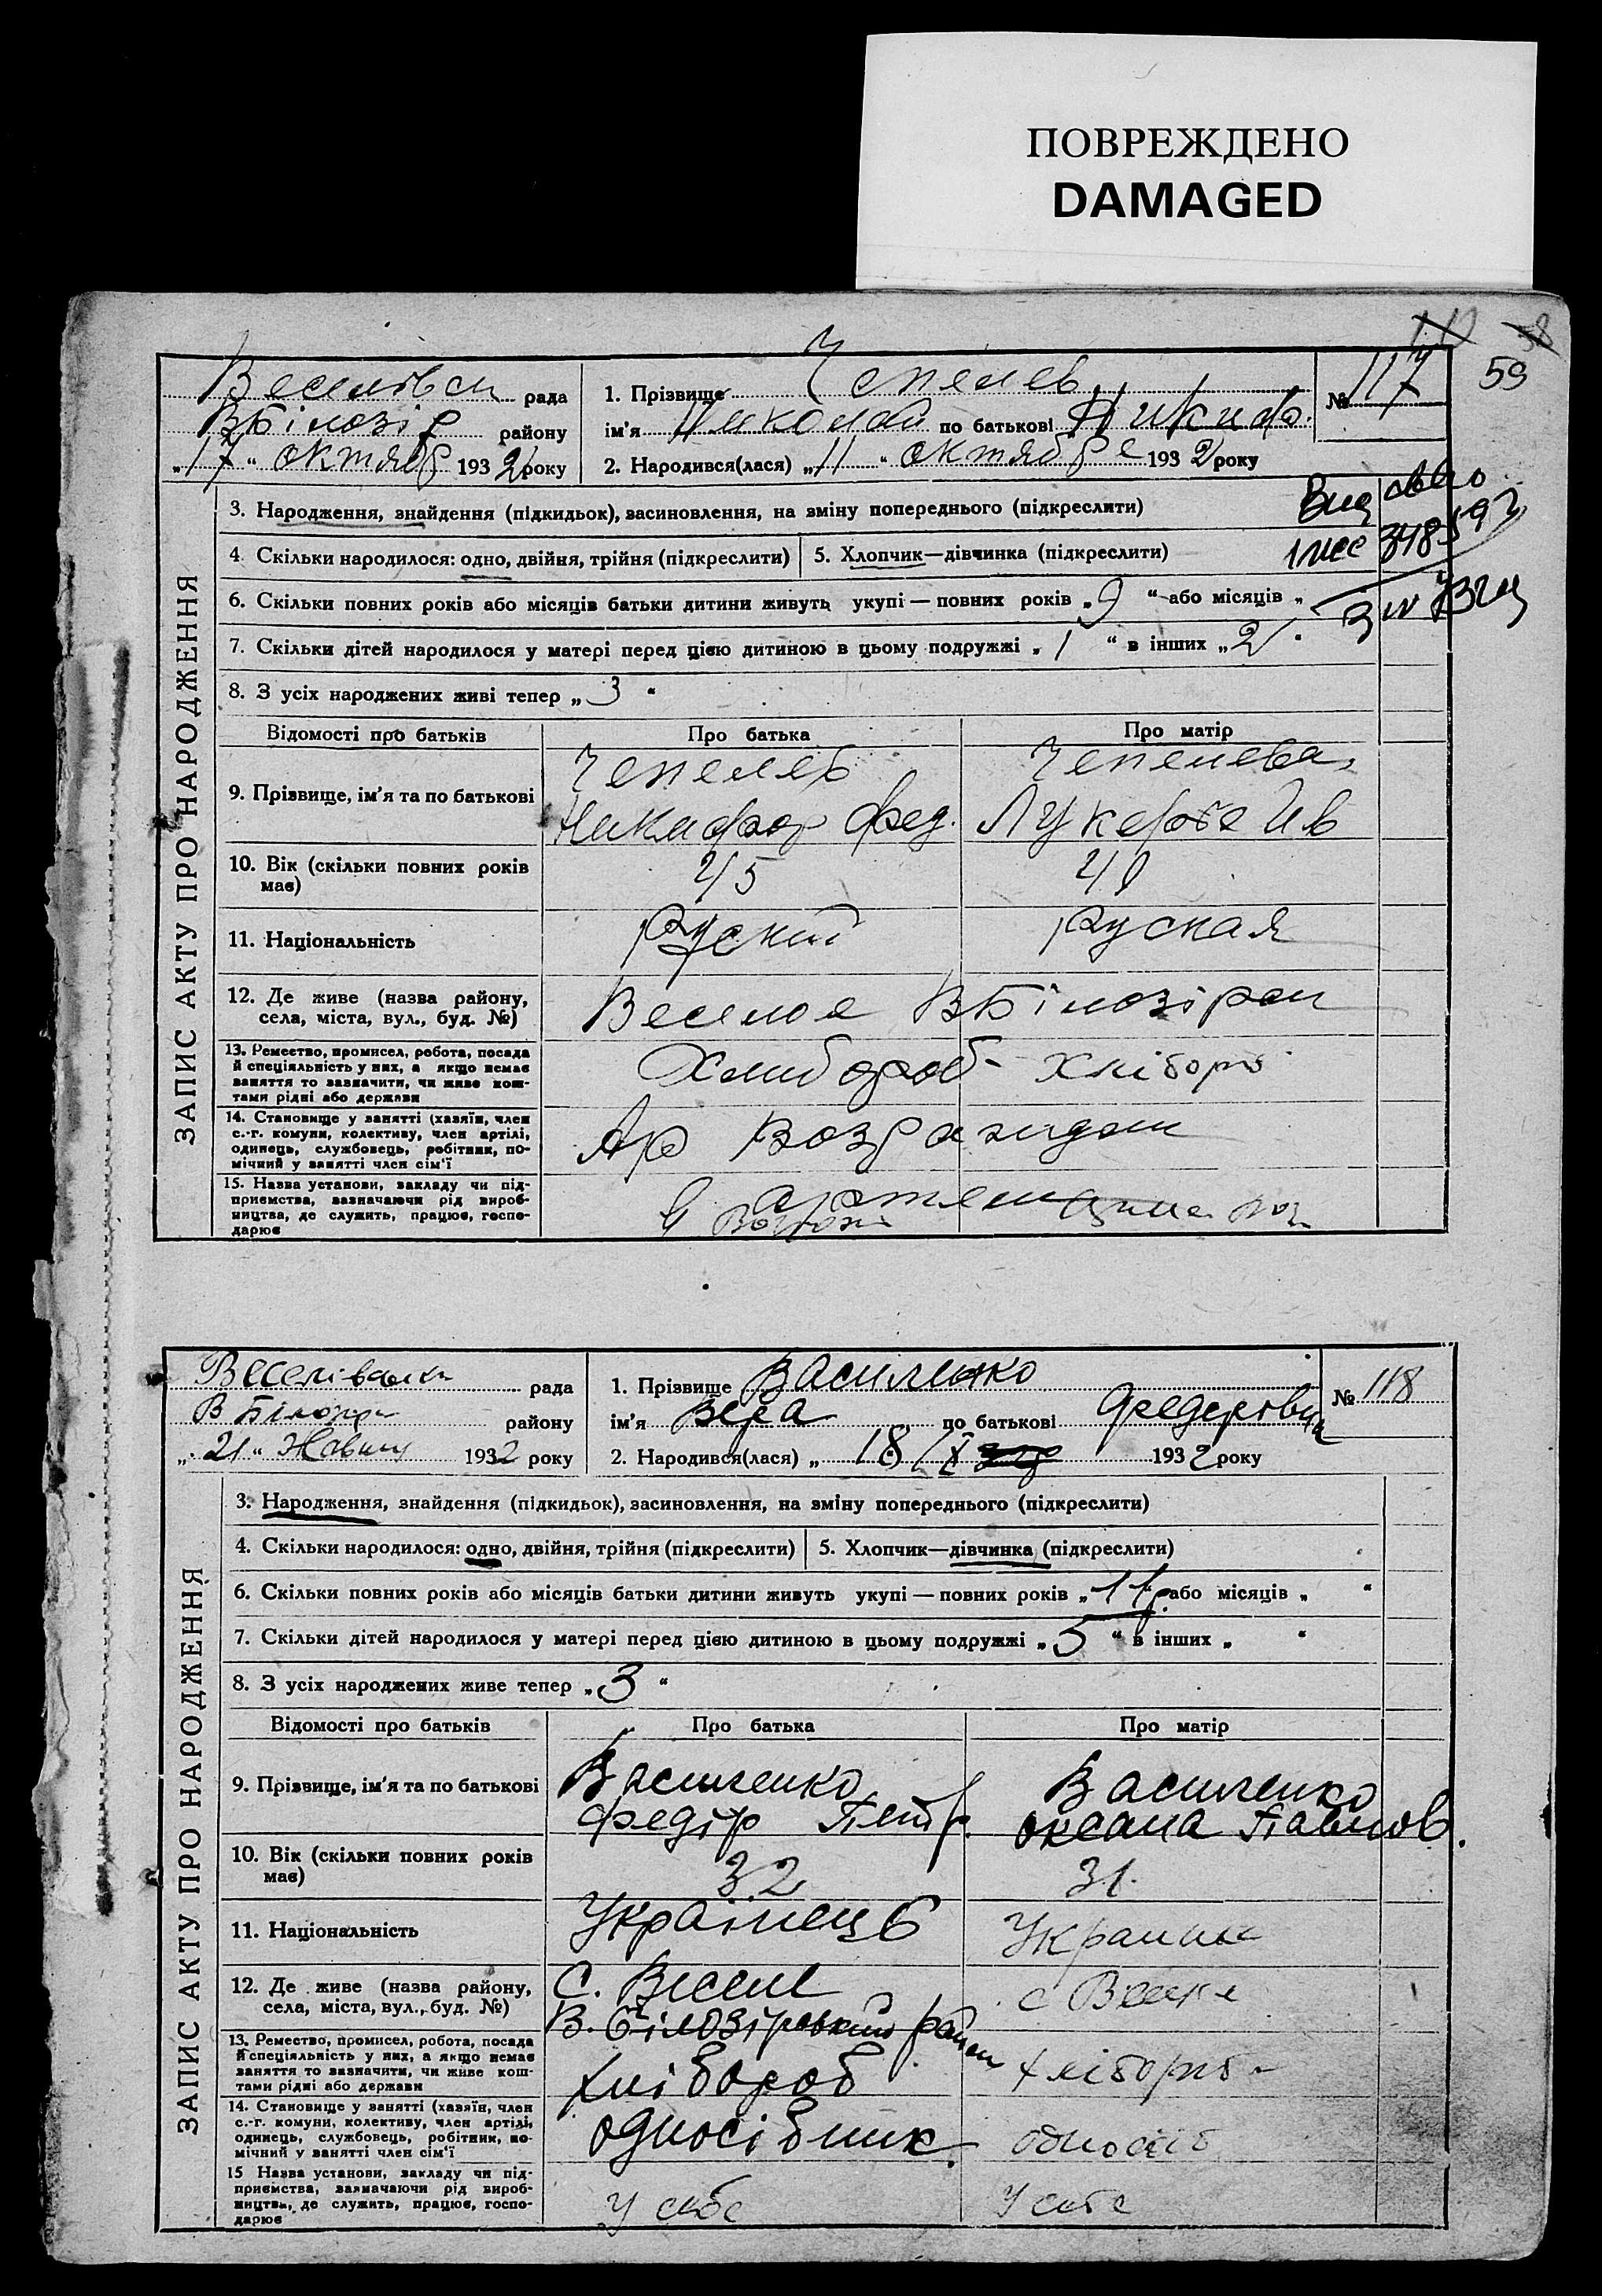 ПОВРЕЖДЕНО
DAMAGED
58
59
Веселівськ рада
ВБілозір району
„17“ октябр 1932 року
1. Прізвище Чепелев
ім'я Николай по батькові Никиф.
2. Народився(лася) „11“ октябре 1932 року
№ 117
ЗАПИС АКТУ ПРО НАРОДЖЕННЯ
3. Народження, знайдення (підкидьок), засиновлення, на зміну попереднього (підкреслити)
4. Скільки народилося: одно, двійня, трійня (підкреслити)
5. Хлопчик—дівчинка (підкреслити)
6. Скільки повних років або місяців батьки дитини живуть укупі — повних років „9“ або місяців „
7. Скільки дітей народилося у матері перед цією дитиною в цьому подружжі „1“ в інших „2“
8. З усіх народжених живі тепер „3“
Відомості про батьків
Про батька
Про матір
9. Прізвище, ім'я та по батькові
Чепелев
Никифор Фед.
Чепелева
Лукерья Ив
10. Вік (скільки повних років
має)
45
11. Національність
Руский
Руская
12. Де живе (назва району,
села, міста, вул., буд. №)
Веселое ВБілозірск
13. Ремество, промисел, робота, посада
й спеціяльність у них, а якщо немає
заняття то зазначити, чи живе кош-
тами рідні або держави
Хлибороб
хлібороб
14. Становище у занятті (хазяїн, член
с.-г. комуни, колективу, член артілі,
одинець, службовець, робітник, по-
мічний у занятті член сім'ї
15. Назва установи, закладу чи під-
приємства, зазначаючи рід вироб-
ництва, де служить, працює, госпо-
дарює
Веселівська рада
В Білозір району
„21“ Жовтня 1932 року
1. Прізвище Василенко
ім'я Вера по батькові Федеровна
2. Народився(лася) „18 IX 1932 року
№ 118
ЗАПИС АКТУ ПРО НАРОДЖЕННЯ
3. Народження, знайдення (підкидьок), засиновлення, на зміну попереднього (підкреслити)
4. Скільки народилося: одно, двійня, трійня (підкреслити)
5. Хлопчик—дівчинка (підкреслити)
6. Скільки повних років або місяців батьки дитини живуть укупі — повних років „11р. або місяців „ “
7. Скільки дітей народилося у матері перед цією дитиною в цьому подружжі „5“ в інших „ “
8. З усіх народжених живе тепер „3“
Відомості про батьків
Про батька
Про матір
9. Прізвище, ім'я та по батькові
Василенко
Федір Петр.
Василенко
Оксана Павлов.
10. Вік (скільки повних років
має)
32
31.
11. Національність
Українець
Украинка
12. Де живе (назва району,
села, міста, вул., буд. №)
С. Веселе
В. Білозірський район
с Веселе
13. Ремество, промисел, робота, посада
й спеціяльність у них, а якщо немає
заняття то зазначити, чи живе кош-
тами рідні або держави
хлібороб
хлібороб
14. Становище у занятті (хазяїн, член
с.-г. комуни, колективу, член артілі,
одинець, службовець, робітник, по-
мічний у занятті член сім'ї
односібник.
односіб
15 Назва установи, закладу чи під-
приємства, зазначаючи рід вироб-
ництва, де служить, працює, госпо-
дарює
У себе
У себе